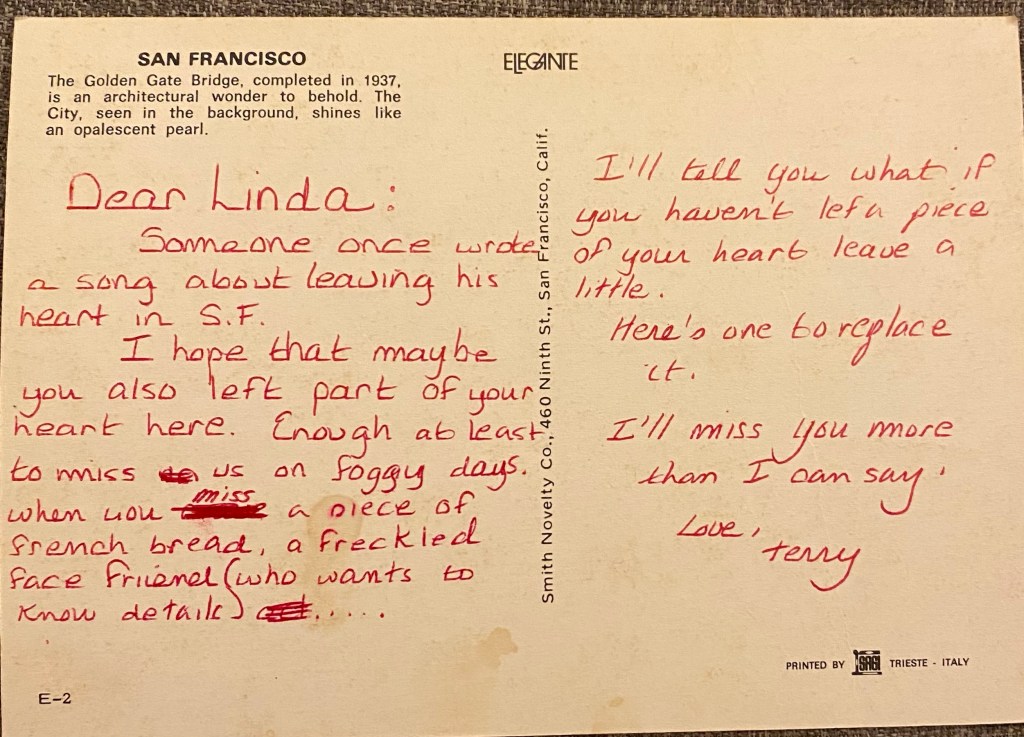 SAN FRANCISCO
The Golden Gate Bridge, completed in 1937,
is an architectural wonder to behold. The
City, seen in the background, shines like
an opalescent pearl.
Dear Linda:
Someone once wrote
a song about leaving his
heart in S.F.
I hope that maybe
you also left part of your
heart here. Enough at least
to miss us on foggy days.
when you miss a piece of
french bread, a freckled
face friend (who wants to
know details) .....
E-2
ELEGANTE
Smith Novelty Co., 460 Ninth St., San Francisco, Calif.
I'll tell you what if
you haven't left a piece
of your heart leave a
little.
Here's one to replace
it.
I'll miss you more
than I can say.
Love,
terry
PRINTED BY SAGI TRIESTE - ITALY